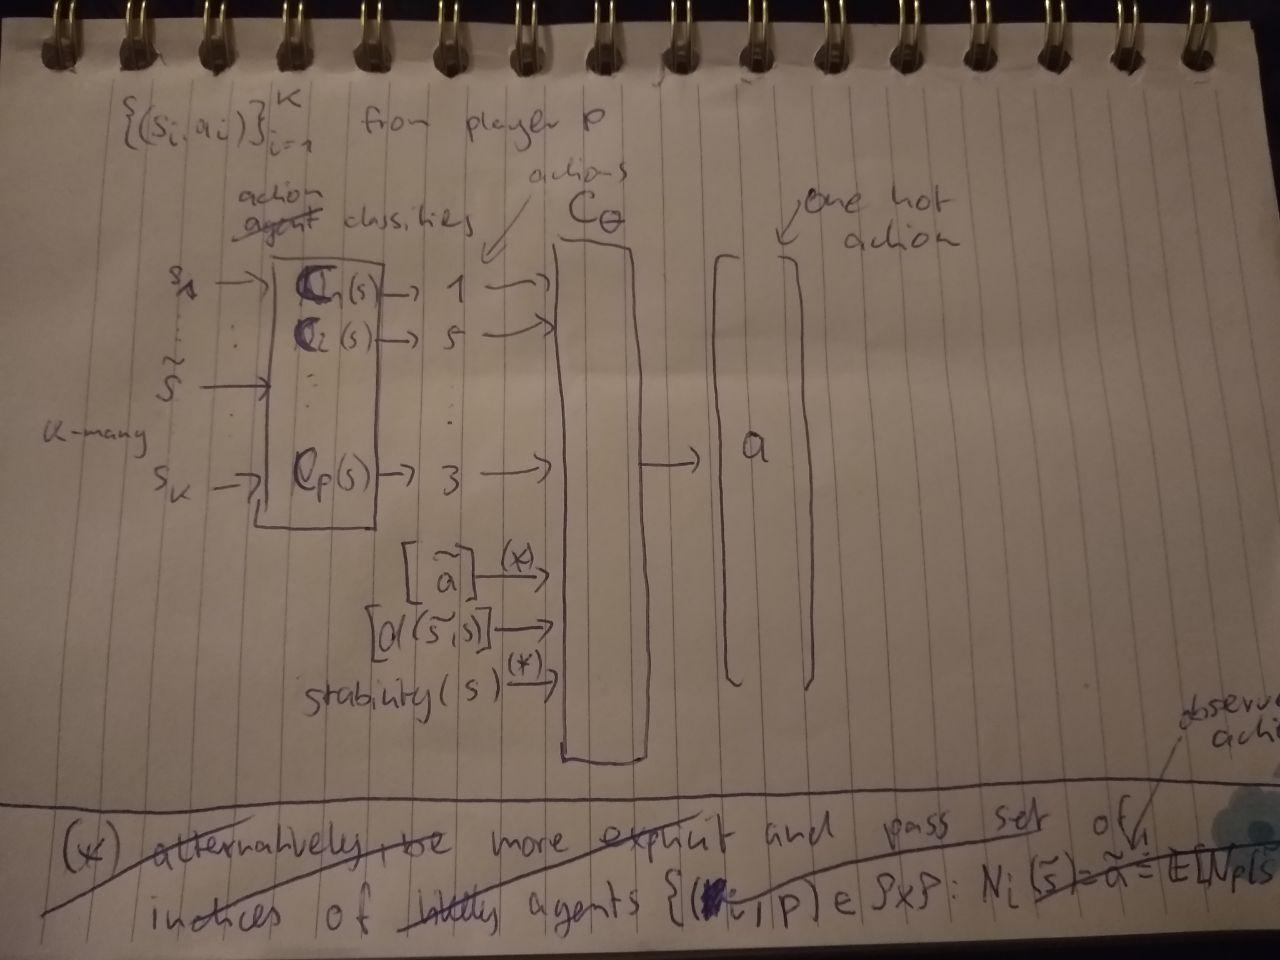 {(s_i, a_i)}_{i=1}^K from player p
actions
action
agent classifiers
C_θ
one hot
action
s_1 → C_1(s) → 1 →
C_2(s) → 5 →
s̃ →
K-many
s_K → C_p(s) → 3 →
→ a
[ã] (*) →
[d(s̃,s)] →
stability(s) (*) →
observed
(*) alternatively, be more explicit and pass set of
indices of likely agents {(i, p) ∈ P×P : N_i(s̃) = ã